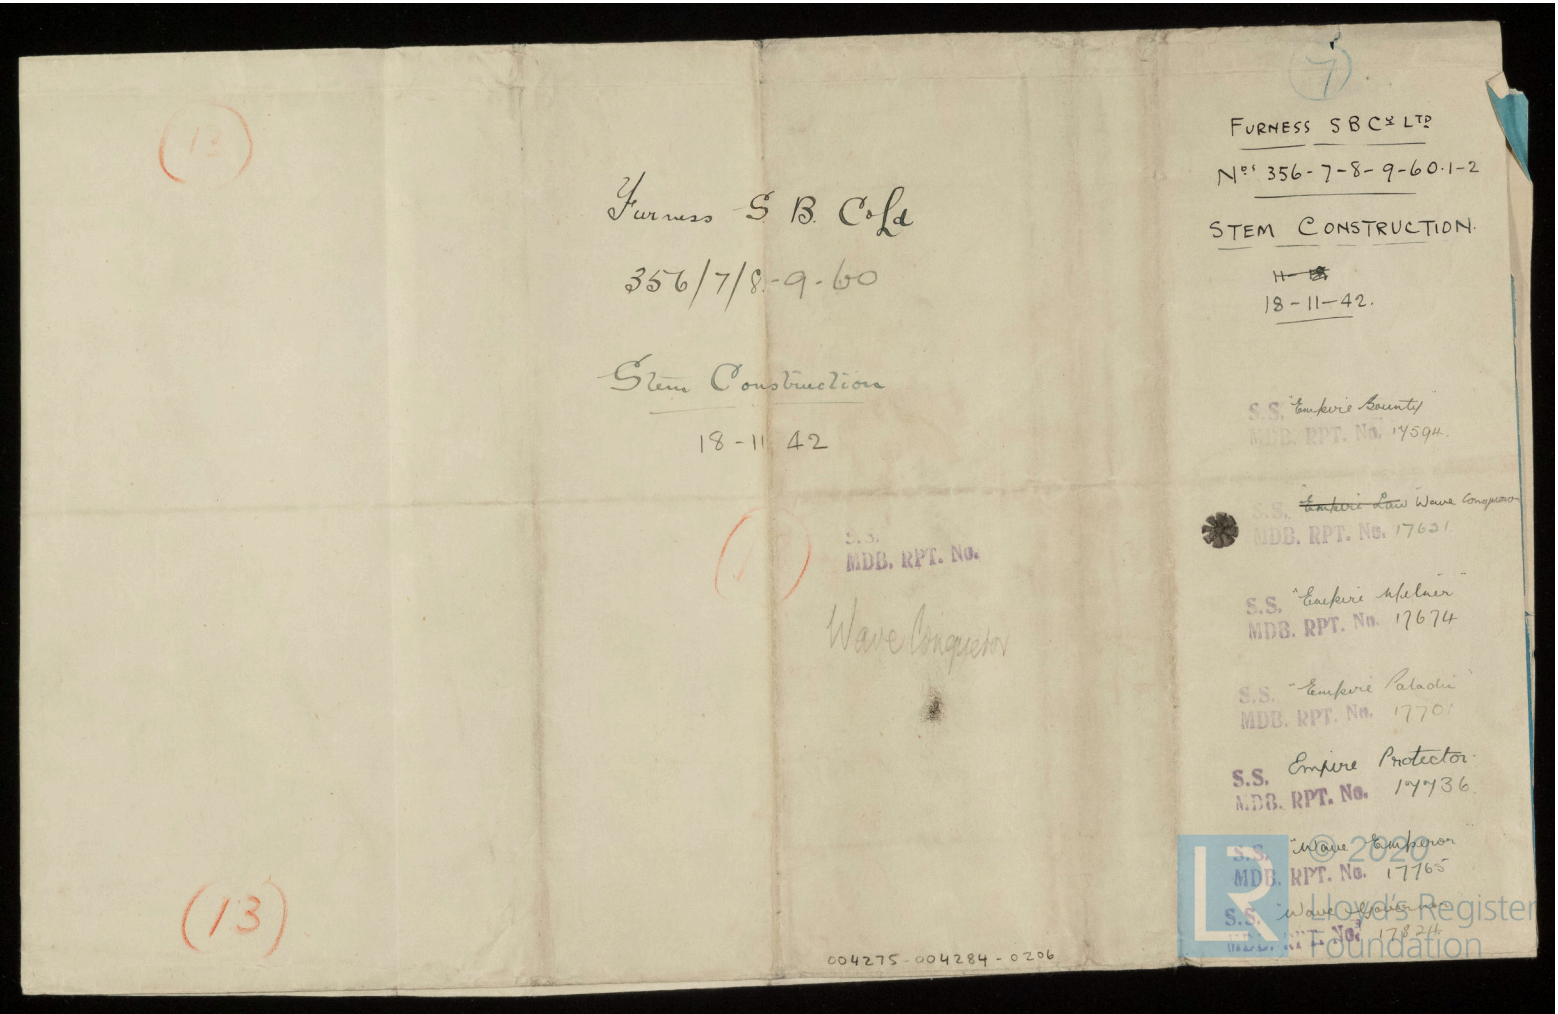 13
Furness S. B. Co Ld
356/7/8-9-60
Stem Construction
18-11 42
S.S.
MDB. RPT. No.
Wave Conqueror
(13)
004275-004284-0206
7
FURNESS S B Cʸ LTD
Nᵒˢ 356-7-8-9-60.1-2
STEM CONSTRUCTION.
18-11-42.
S.S. "Empire Bounty"
MDB. RPT. No. 17594.
S.S. "Empire Law" Wave Conqueror
MDB. RPT. No. 17631.
S.S. "Empire Milner"
MDB. RPT. No. 17674
S.S. "Empire Paladin"
MDB. RPT. No. 17701
S.S. Empire Protector.
MDB. RPT. No. 17736.
S.S. "Wave Emperor"
MDB. RPT. No. 17765
S.S. "Wave Governor
MDB. RPT. No. 17824
LR © 2020
Lloyd's Register
Foundation